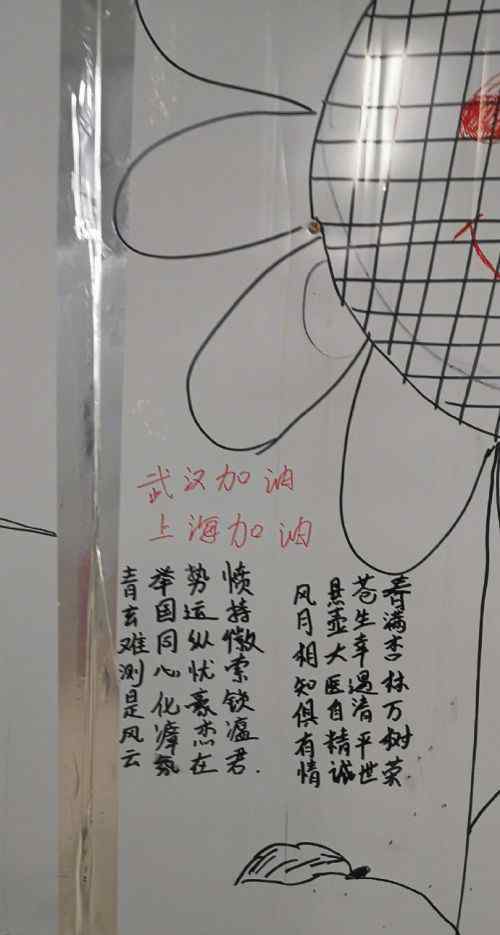 武汉加油
上海加油
青玄难测是风云
举国同心化瘴氛
势运纵忧豪杰在
愤持檄索锁瘟君.
风月相知俱有情
悬壶大医自精诚
苍生幸遇清平世
春满杏林万树荣